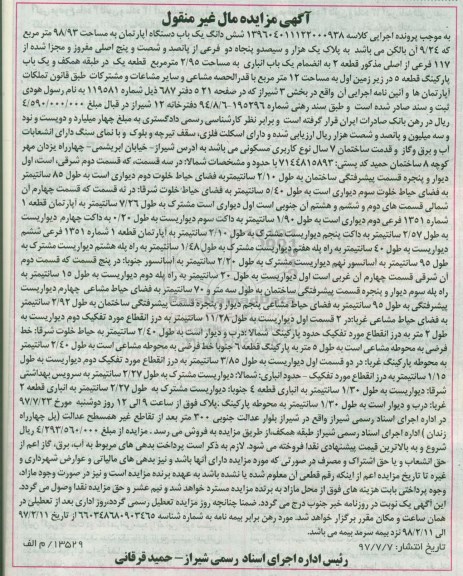 آگهی مزایده مال غیر منقول
به موجب پرونده اجرایی کلاسه ۱۳۹۶۰۴۰۱۱۱۲۲۰۰۰۹۳۸ شش دانگ یک باب دستگاه آپارتمان به مساحت ۹۸/۹۳ متر مربع
که ۹/۲۴ آن بالکن می باشد به پلاک یک هزار و سیصدو پنجاه دو فرعی از پانصد و شصت و پنج اصلی مفروز و مجزا شده از
۱۱۷ فرعی از اصلی مذکور قطعه ۲ به انضمام یک باب انباری به مساحت ۲/۹۵ مترمربع قطعه یک در طبقه همکف و یک باب
پارکینگ قطعه ۵ در زیر زمین اول به مساحت ۱۲ متر مربع با قدرالحصه مشاعی و سایر مشاعات و مشترکات طبق قانون تملکات
آپارتمان ها و آئین نامه اجرایی آن واقع در بخش ۳ شیراز که در صفحه ۲۱ دفتر ۶۸۷ ذیل شماره ۱۱۹۵۸۱ به نام رسول هودی
ثبت و سند صادر شده است و طبق سند رهنی شماره ۱۹۵۲۹۶-۹۴/۸/۶ دفترخانه ۱۲ شیراز در قبال مبلغ ۴/۵۹۰/۰۰۰/۰۰۰
ریال در رهن بانک صادرات ایران قرار گرفته است و برابر نظر کارشناسی رسمی دادگستری به مبلغ چهار میلیارد و دویست و نود
و سه میلیون و پانصد و شصت هزار ریال ارزیابی شده و دارای اسکلت فلزی، سقف تیرچه و بلوک و با نمای سنگ دارای انشعابات
آب و برق وگاز و قدمت ساختمان ۷ سال نوع کاربری مسکونی می باشد به آدرس شیراز- خیابان ابریشمی- چهارراه یزدان مهر
کوچه ۸ ساختمان حمید کد پستی: ۷۱۴۴۸۱۵۸۹۳ با حدود و مشخصات شمالا: در سه قسمت، که قسمت دوم شرقی، است، اول
دیوار و پنجره قسمت پیشرفتگی ساختمان به طول ۲/۱۰ سانتیمتربه فضای حیاط خلوت دوم دیواری است به طول ۸۵ سانتیمتر
به فضای حیاط خلوت سوم دیواری است به طول ۵/۴۰ سانتیمتر به فضای حیاط خلوت شرقا: در نه قسمت که قسمت چهارم آن
شمالی قسمت های دوم و ششم و هشتم آن جنوبی است اول دیواری است مشترک به طول ۷/۲۶ سانتیمتر به آپارتمان قطعه ۱
شماره ۱۳۵۱ فرعی دوم دیواری است به طول ۱/۹۰ سانتیمتر به داکت سوم دیواریست به طول ۰/۲۰ به داکت چهارم دیواریست
به طول ۲/۵۷ سانتیمتر به داکت پنجم دیواریست مشترک به طول ۲/۱۰ سانتیمتر به آپارتمان قطعه ۱ شماره ۱۳۵۱ فرعی ششم
دیواریست به طول ۴۰ سانتیمتر به راه پله هفتم دیواریست مشترک به طول ۱/۴۸ سانتیمتر به راه پله هشتم دیواریست مشترک به
طول ۹۵ سانتیمتر به آسانسور نهم دیواریست مشترک به طول ۲/۲۰ سانتیمتر به آسانسور جنوبا: در پنج قسمت که قسمت دوم
آن شرقی قسمت چهارم آن غربی است اول دیواریست به طول ۲۰ سانتیمتر به راه پله دوم دیواریست به طول ۱۵ سانتیمتر به
راه پله سوم دیوار و پنجره قسمت پیشرفتگی ساختمان به طول سه متر و ۷۰ سانتیمتر به فضای حیاط مشاعی چهارم دیواریست
پیشرفتگی به طول ۹۵ سانتیمتر به فضای حیاط مشاعی پنجم دیوار و پنجره قسمت پیشرفتگی ساختمان به طول ۲/۹۲ سانتیمتر
به فضای حیاط مشاعی غربا:در ۲ قسمت اول دیواریست به طول ۱۱/۲۸ سانتیمتر به درز انقطاع مورد تفکیک دوم دیواریست به
طول ۳ متر به درز انقطاع مورد تفکیک حدود پارکینگ شمالا :درب و دیوار است به طول ۲/۴۰ سانتیمتر به حیاط خلوت شرقا: خط
فرضی به محوطه مشاعی است به طول ۵ متر به پارکینگ قطعه ۶ جنوبا خط فرضی به محوطه مشاعی است به طول ۲/۴۰ سانتیمتر
به محوطه پارکینگ غربا: در دو قسمت اول دیواریست به طول ۳/۸۵ سانتیمتر به درز انقطاع مورد تفکیک دوم دیواریست به طول
۱/۱۵ سانتیمتر به درز انقطاع مورد تفکیک - حدود انباری: شمالا: دیواریست مشترک به طول ۲/۲۷ سانتیمتر به سرویس بهداشتی
شرقا: دیواریست به طول ۱/۳۰ سانتیمتر به انباری قطعه ۴ جنوبا: دیواریست مشترک به طول ۲/۲۷ سانتیمتر به انباری قطعه ۲
غربا: درب و دیوار است به طول ۱/۳۰ سانتیمتر به محوطه پارکینگ .پلاک فوق از ساعت ۹ الی ۱۲ روز دوشنبه مورخ ۹۷/۷/۲۳
در اداره اجرای اسناد رسمی شیراز واقع در شیراز بلوار عدالت جنوبی ۳۰۰ متر بعد از تقاطع غیر همسطح عدالت (پل چهارراه
زندان ) اداره اجرای اسناد رسمی شیراز طبقه همکف،از طریق مزایده به فروش می رسد . مزایده از مبلغ ۴/۲۹۳/۵۶۰/۰۰۰ ریال
شروع و به بالاترین قیمت پیشنهادی نقدا فروخته می شود. لازم به ذکر است پرداخت بدهی های مربوط به آب، برق، گاز اعم از
حق انشعاب و یا حق اشتراک و مصرف در صورتی که مورد مزایده دارای آنها باشد و نیز بدهی های مالیاتی و عوارض شهرداری و
غیره تا تاریخ مزایده اعم از اینکه رقم قطعی آن معلوم شده یا نشده باشد به عهده برنده مزایده است و نیز در صورت وجود مازاد،
وجوه پرداختی بابت هزینه های فوق از محل مازاد به برنده مزایده مسترد خواهد شد و نیم عشر و حق مزایده نقدا وصول می گردد.
این آگهی یک نوبت در روزنامه خبر جنوب درج می گردد. ضمنا چنانچه روز مزایده تعطیل رسمی گردد،روز اداری بعد از تعطیلی در
همان ساعت و مکان مقرر برگزار خواهد شد. مورد رهن برابر بیمه نامه به شماره شناسه ۶۶۰۳۴۸۶۸۰۹۰۳۴۶۵ از تاریخ ۹۷/۲/۱۱
الی ۹۸/۲/۱۱ نزد بیمه سرمد بیمه می باشد.
تاریخ انتشار: ۹۷/۷/۷
۱۳۵۲۹/ م الف
رئیس اداره اجرای اسناد رسمی شیراز – حمید قرقانی